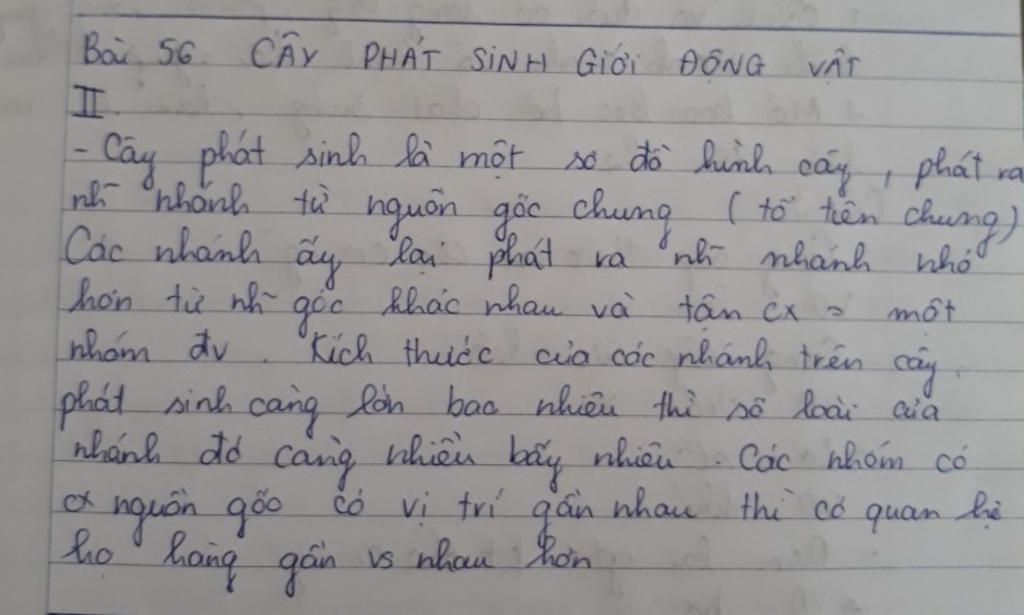 Bài 56 CÂY PHÁT SINH GIỚI ĐỘNG VẬT
II
- Cây phát sinh là một sơ đồ hình cây, phát ra
nh~ nhánh từ nguồn gốc chung (tổ tiên chung)
Các nhánh ấy lại phát ra nh~ nhánh nhỏ
hơn từ nh~ gốc khác nhau và tận cx = một
nhóm đv. Kích thước của các nhánh trên cây
phát sinh càng lớn bao nhiêu thì số loài của
nhánh đó càng nhiều bấy nhiêu. Các nhóm có
cx nguồn gốc có vị trí gần nhau thì có quan hệ
họ hàng gần vs nhau hơn